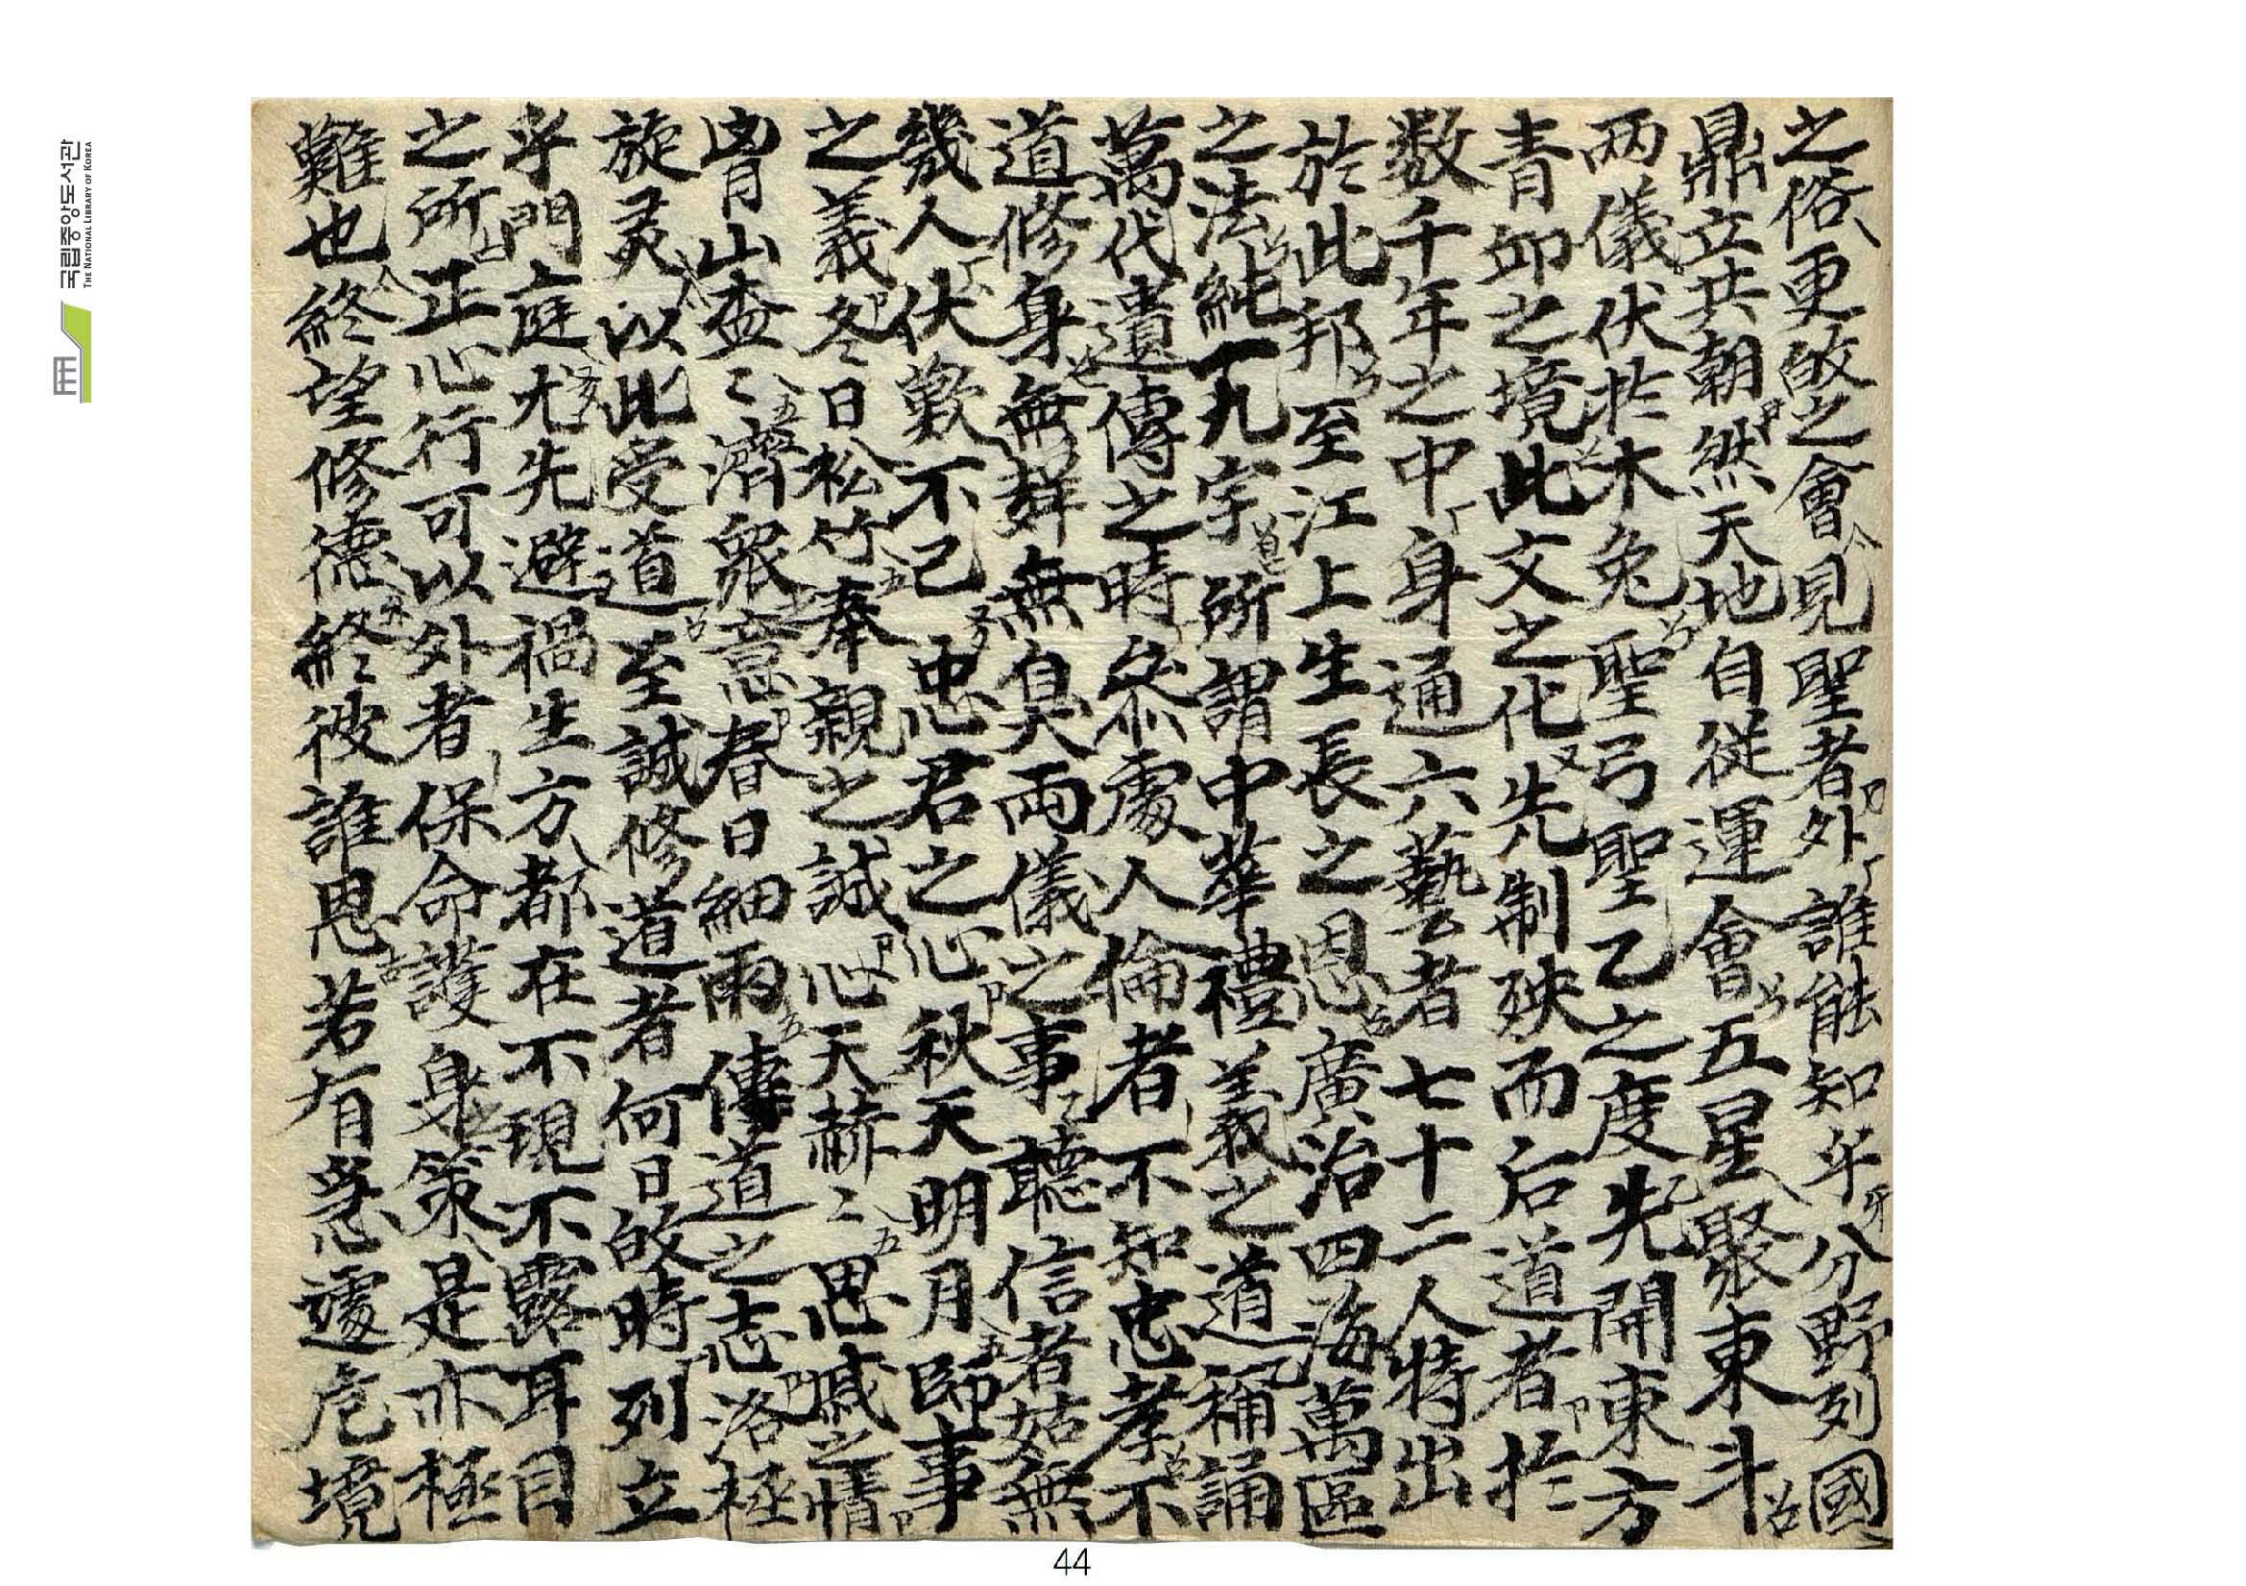 之俗更啟之會見聖者外誰能知年分野列國
鼎立共朝然天地自從運會五星聚東斗
两儀伏於木兔聖弓聖乙之度先開東方
青卯之境此文之化先制殃而后道者於
数千年之中身通六藝者七十二人特出
於此邦至江上生長之恩廣治四海萬區
之法純一九字所謂中華禮義之道稱誦
萬代遺傳之時參處人倫者不知忠孝不
道修身無聲無臭兩儀之事聽信者姑無
幾人伏歎不已忠君之心秋天明月師事
之義冬日松竹奉親之誠心天赫〻思戚之情
山盃〻濟衆意春日細雨傳道之志洛極
旋灵以此受道至誠修道者何日啟時列立
乎門庭尤先避禍生方都在不現不露耳目
之所正心行可以外者保命護身策是亦極
難也終望修德終彼誰恩若有急遽危境
국립중앙도서관
THE NATIONAL LIBRARY OF KOREA
44